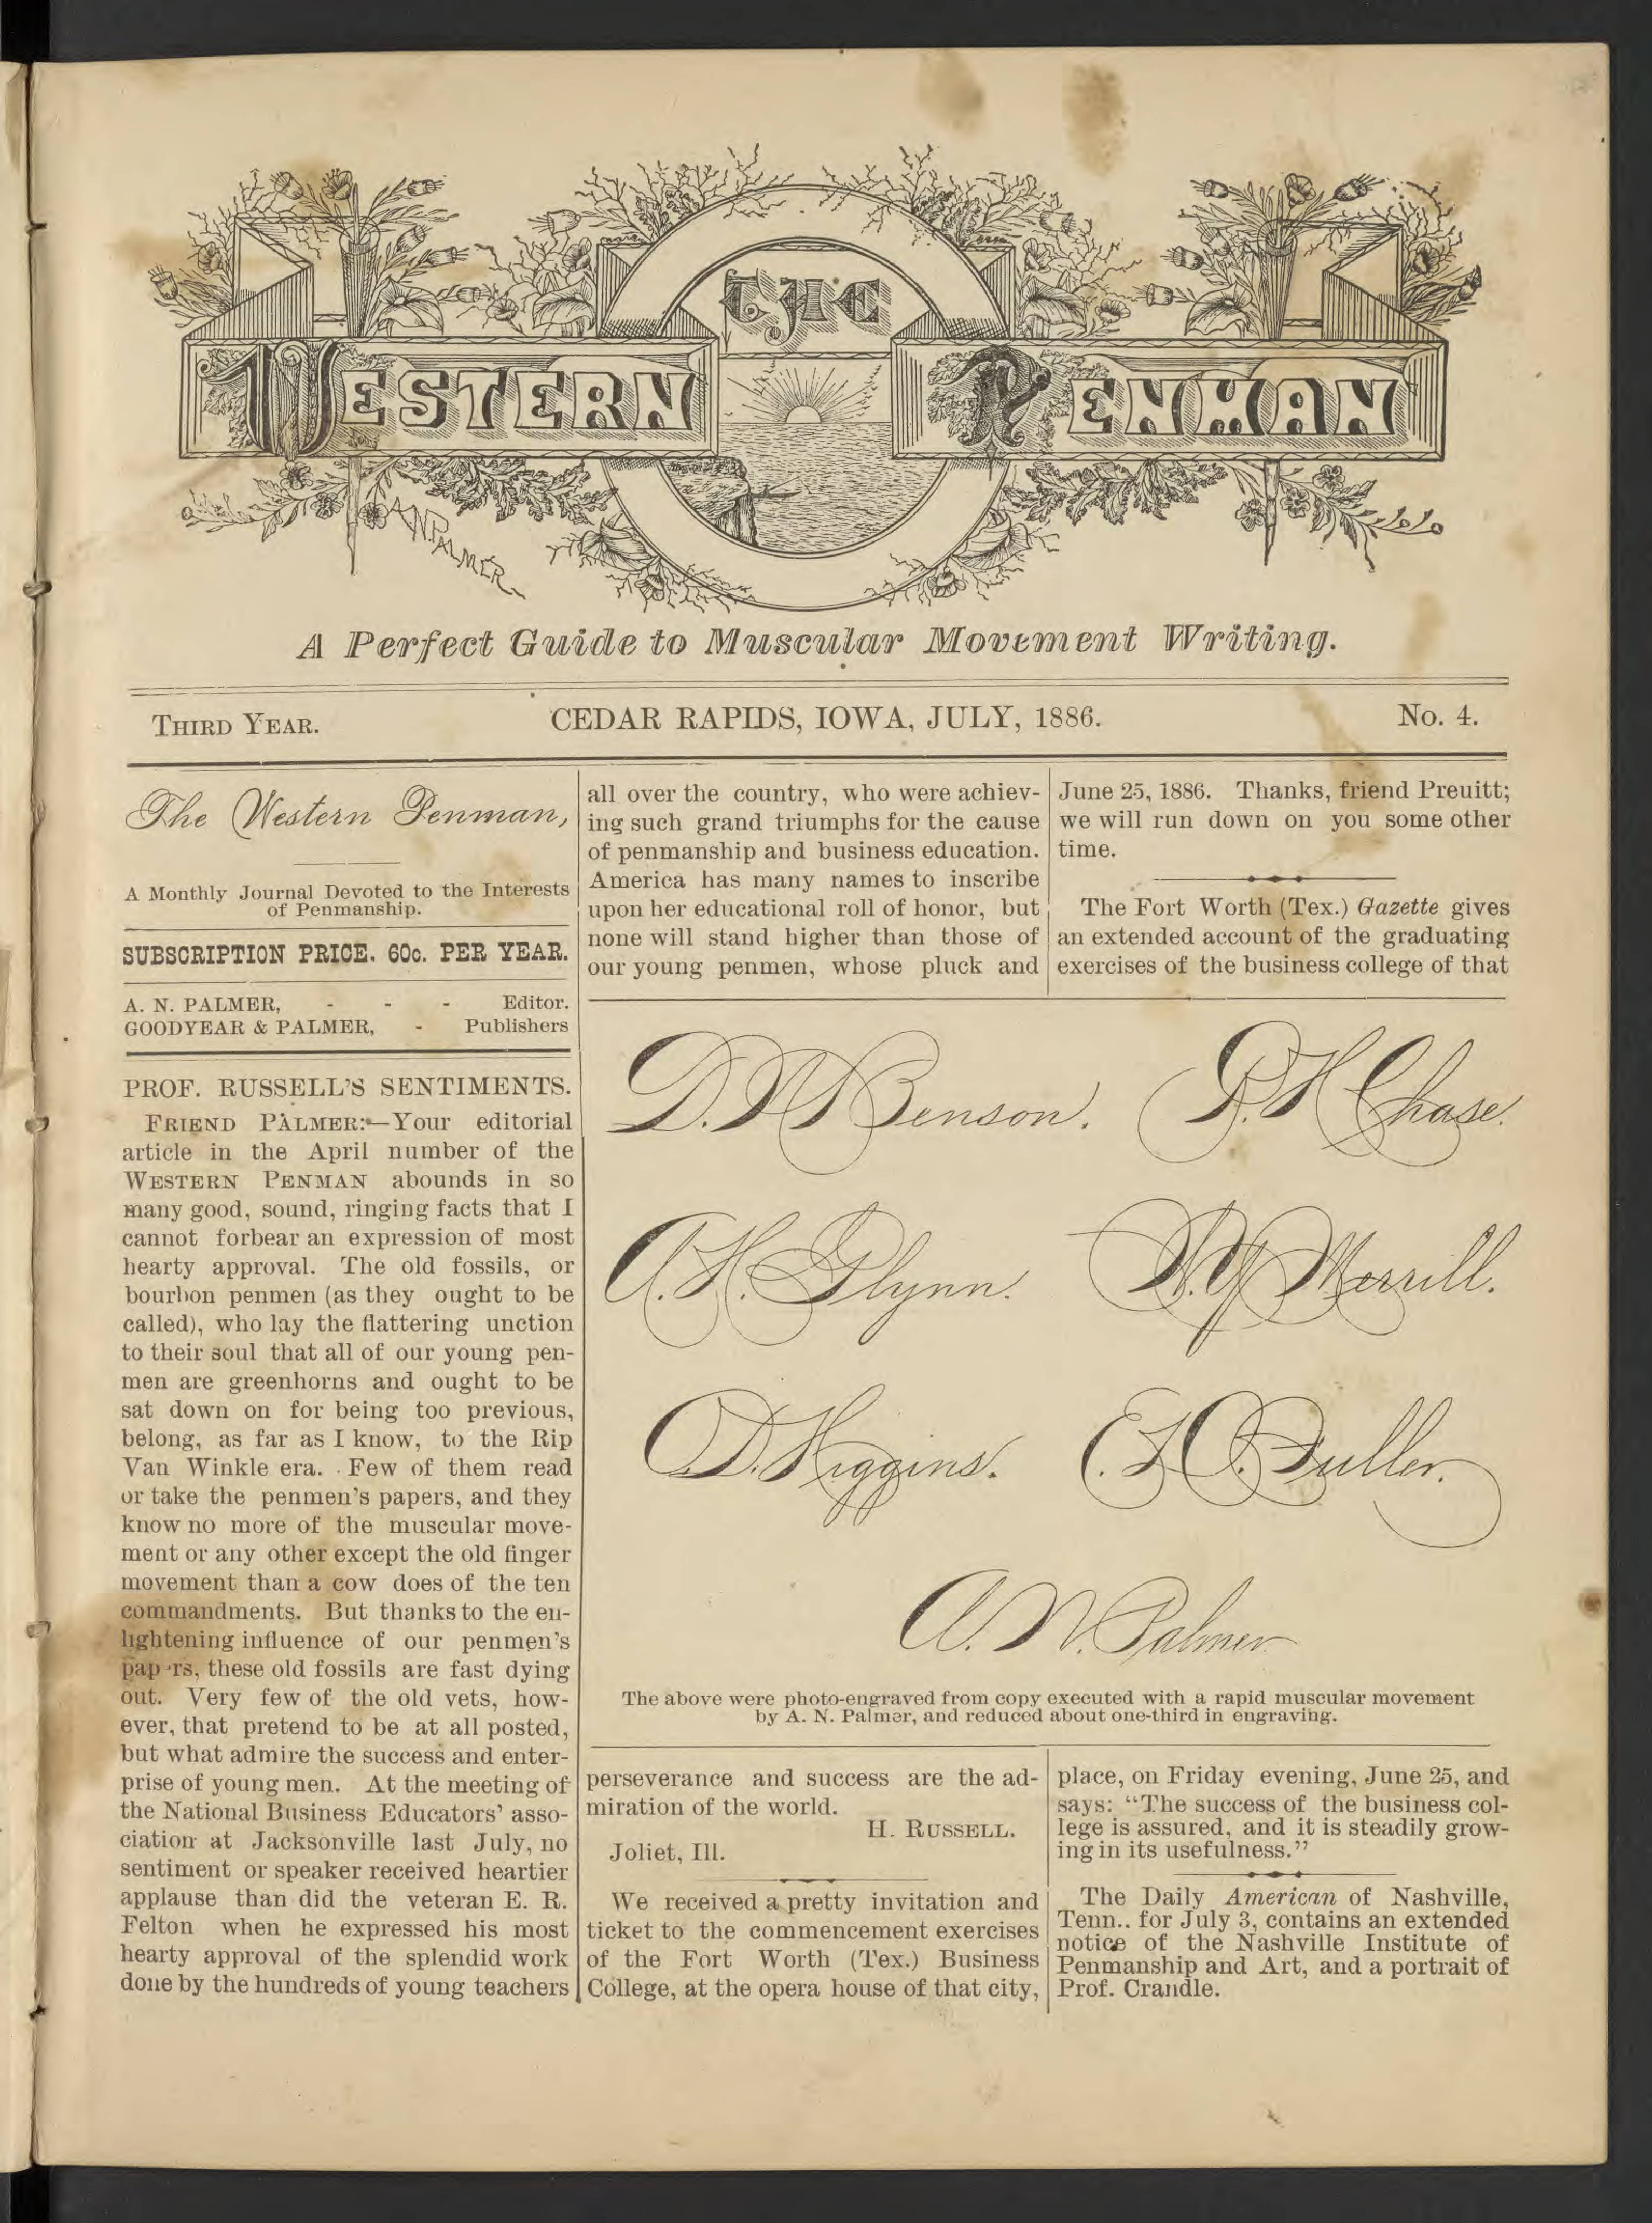 THE
WESTERN PENMAN
A. N. PALMER
A Perfect Guide to Muscular Movement Writing.
THIRD YEAR. CEDAR RAPIDS, IOWA, JULY, 1886. No. 4.
The Western Penman,
A Monthly Journal Devoted to the Interests
of Penmanship.
SUBSCRIPTION PRICE. 60c. PER YEAR.
A. N. PALMER, - - - Editor.
GOODYEAR & PALMER, - Publishers
PROF. RUSSELL'S SENTIMENTS.
FRIEND PALMER:—Your editorial
article in the April number of the
WESTERN PENMAN abounds in so
many good, sound, ringing facts that I
cannot forbear an expression of most
hearty approval. The old fossils, or
bourbon penmen (as they ought to be
called), who lay the flattering unction
to their soul that all of our young pen-
men are greenhorns and ought to be
sat down on for being too previous,
belong, as far as I know, to the Rip
Van Winkle era. Few of them read
or take the penmen's papers, and they
know no more of the muscular move-
ment or any other except the old finger
movement than a cow does of the ten
commandments. But thanks to the en-
lightening influence of our penmen's
pap rs, these old fossils are fast dying
out. Very few of the old vets, how-
ever, that pretend to be at all posted,
but what admire the success and enter-
prise of young men. At the meeting of
the National Business Educators' asso-
ciation at Jacksonville last July, no
sentiment or speaker received heartier
applause than did the veteran E. R.
Felton when he expressed his most
hearty approval of the splendid work
done by the hundreds of young teachers
all over the country, who were achiev-
ing such grand triumphs for the cause
of penmanship and business education.
America has many names to inscribe
upon her educational roll of honor, but
none will stand higher than those of
our young penmen, whose pluck and
June 25, 1886. Thanks, friend Preuitt;
we will run down on you some other
time.
The Fort Worth (Tex.) Gazette gives
an extended account of the graduating
exercises of the business college of that
Benson. P. H. Chase.
A. H. Glynn. Merrill.
Higgins. Fuller.
A. N. Palmer
The above were photo-engraved from copy executed with a rapid muscular movement
by A. N. Palmer, and reduced about one-third in engraving.
perseverance and success are the ad-
miration of the world.
H. RUSSELL.
Joliet, Ill.
We received a pretty invitation and
ticket to the commencement exercises
of the Fort Worth (Tex.) Business
College, at the opera house of that city,
place, on Friday evening, June 25, and
says: "The success of the business col-
lege is assured, and it is steadily grow-
ing in its usefulness."
The Daily American of Nashville,
Tenn.. for July 3, contains an extended
notice of the Nashville Institute of
Penmanship and Art, and a portrait of
Prof. Crandle.